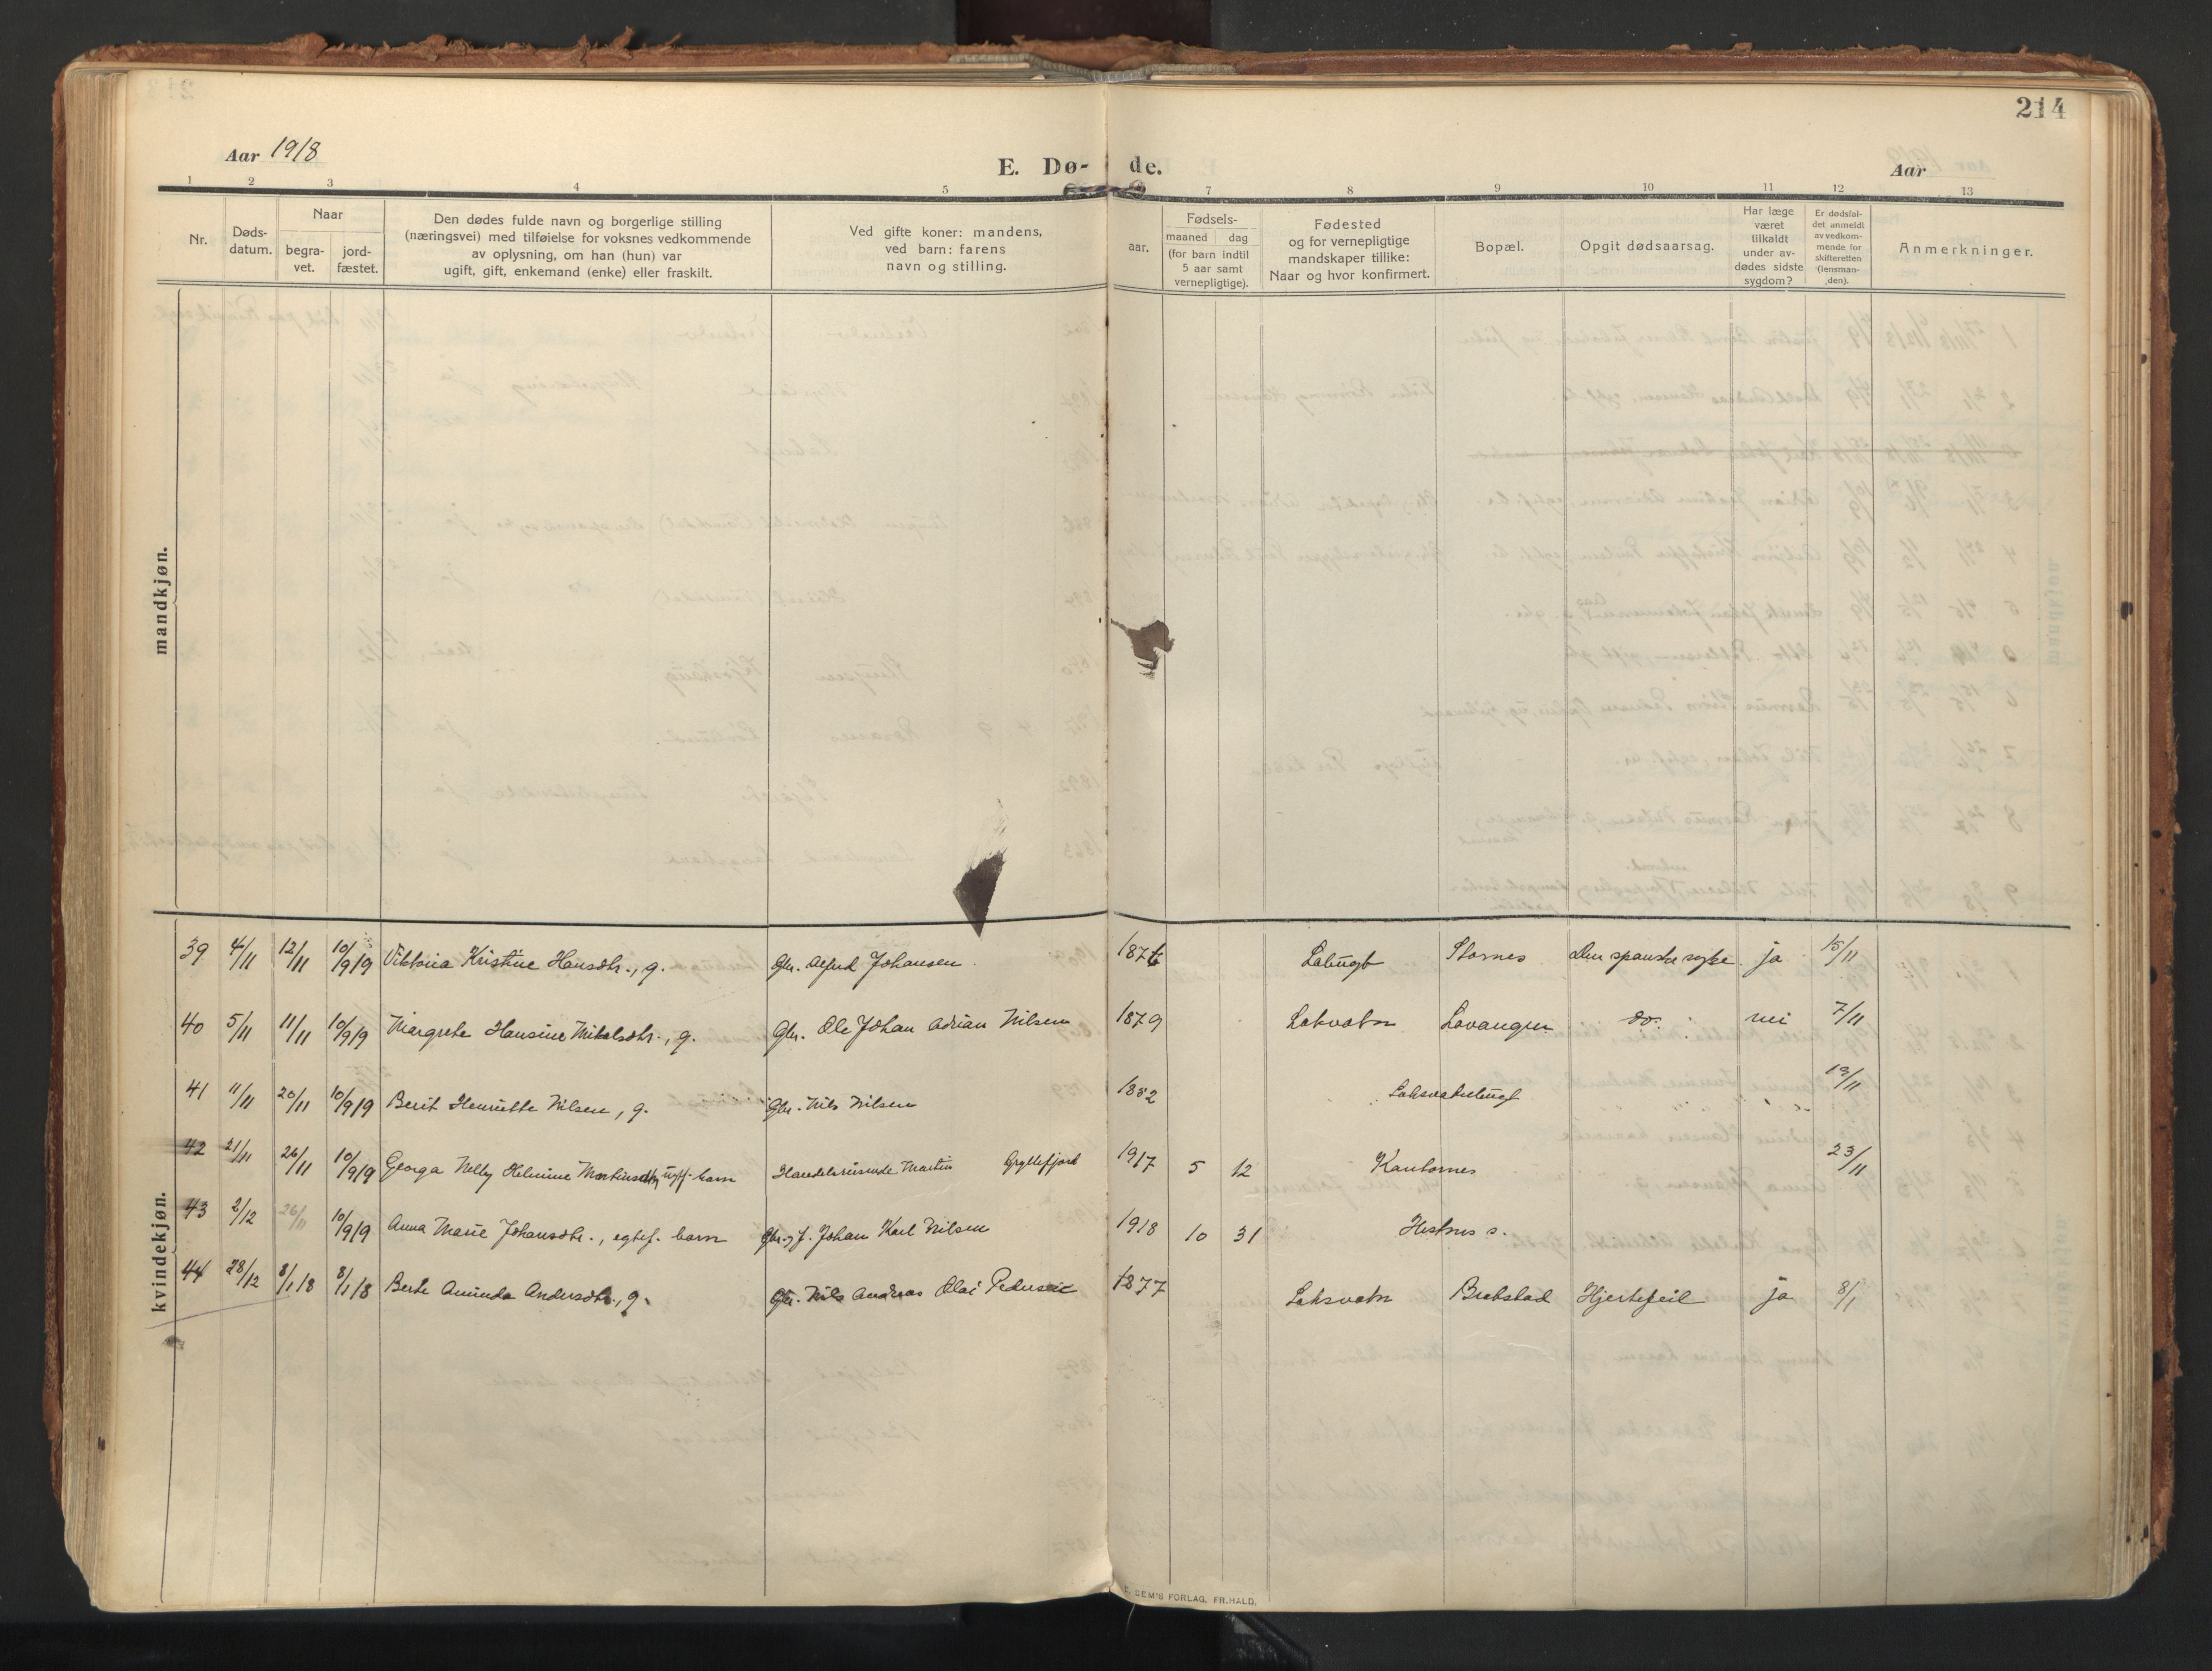 214
Aar 1918
E. Dø- de.
Aar
1 2 3 4 5 7 8 9 10 11 12 13
Nr.
Døds-
datum.
Naar
begra-
vet.
jord-
fæstet.
Den dødes fulde navn og borgerlige stilling
(næringsvei) med tilføielse for voksnes vedkommende
av oplysning, om han (hun) var
ugift, gift, enkemand (enke) eller fraskilt.
Ved gifte koner: mandens,
ved barn: farens
navn og stilling.
aar.
Fødsels-
maaned dag
(for barn indtil
5 aar samt
vernepligtige).
Fødested
og for vernepligtige
mandskaper tillike:
Naar og hvor konfirmert.
Bopæl.
Opgit dødsaarsag.
Har læge
været
tilkaldt
under av-
dødes sidste
sygdom?
Er dødsfal-
det anmeldt
av vedkom-
mende for
skifteretten
(lensman-
den).
Anmerkninger.
mandkjøn.
kvindekjøn.
39 4/11 12/11 10/9 19 Viktoria Kristine Hansdtr., g. Gbr. Alfred Johansen 187 Stornes Den spanske syke ja 15/11
40 5/11 11/11 10/9 19 Margrete Hansine Mikalsdtr., g. Gbr. Ole Johan Adrian Nilsen 1879 Laksvatn Lavangen do. nei 7/11
41 11/11 20/11 10/9 19 Berit Henriette Nilsen, g. Gbr. Nils Nilsen 1882 Laksvatnbugt 19/11
42 21/11 26/11 10/9 19 Georga Nelly Helmine Martinsdtr, uegtef. barn Handelsreisende Martin Gryllefjord 1917 5 12 Kantornes 23/11
43 2/12 26/11 10/9 19 Anna Marie Johansdtr., egtef. barn Gbr. f. Johan Karl Nilsen 1918 10 31 Hestnes s.
44 28/12 8/1 18 8/1 18 Berte Amunda Andersdtr., g. Gbr. Nils Andreas Olai Pedersen 1877 Laksvatn Brebstad Hjertefeil ja 8/1
DEM'S FORLAG. FR. HALD.